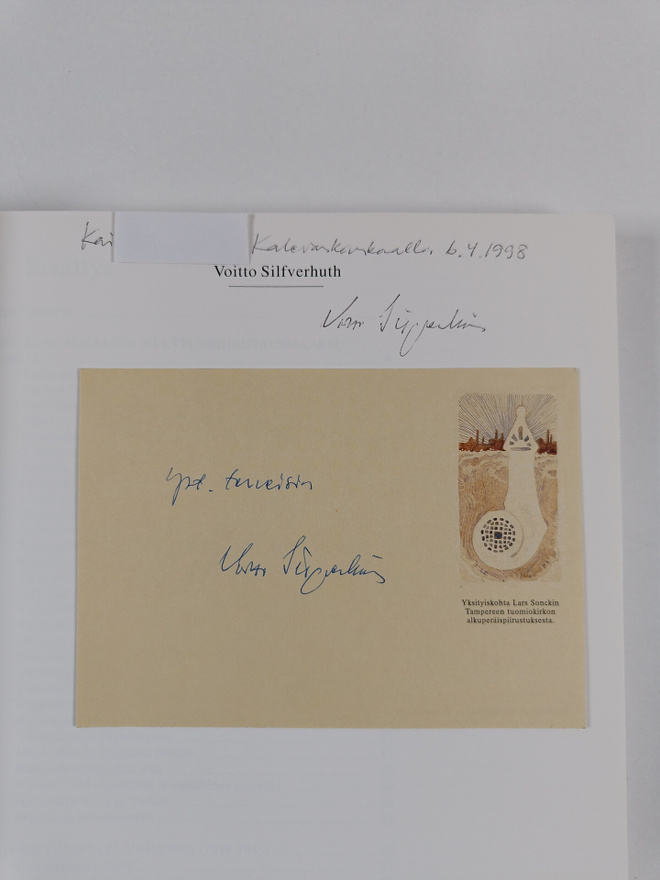 Kai Kalevankankaalla 6.4.1998
Voitto Silfverhuth
Voitto Silfverhuth
yst. terveisin
Voitto Silfverhuth
Yksityiskohta Lars Sonckin
Tampereen tuomiokirkon
alkuperäispiirustuksesta.